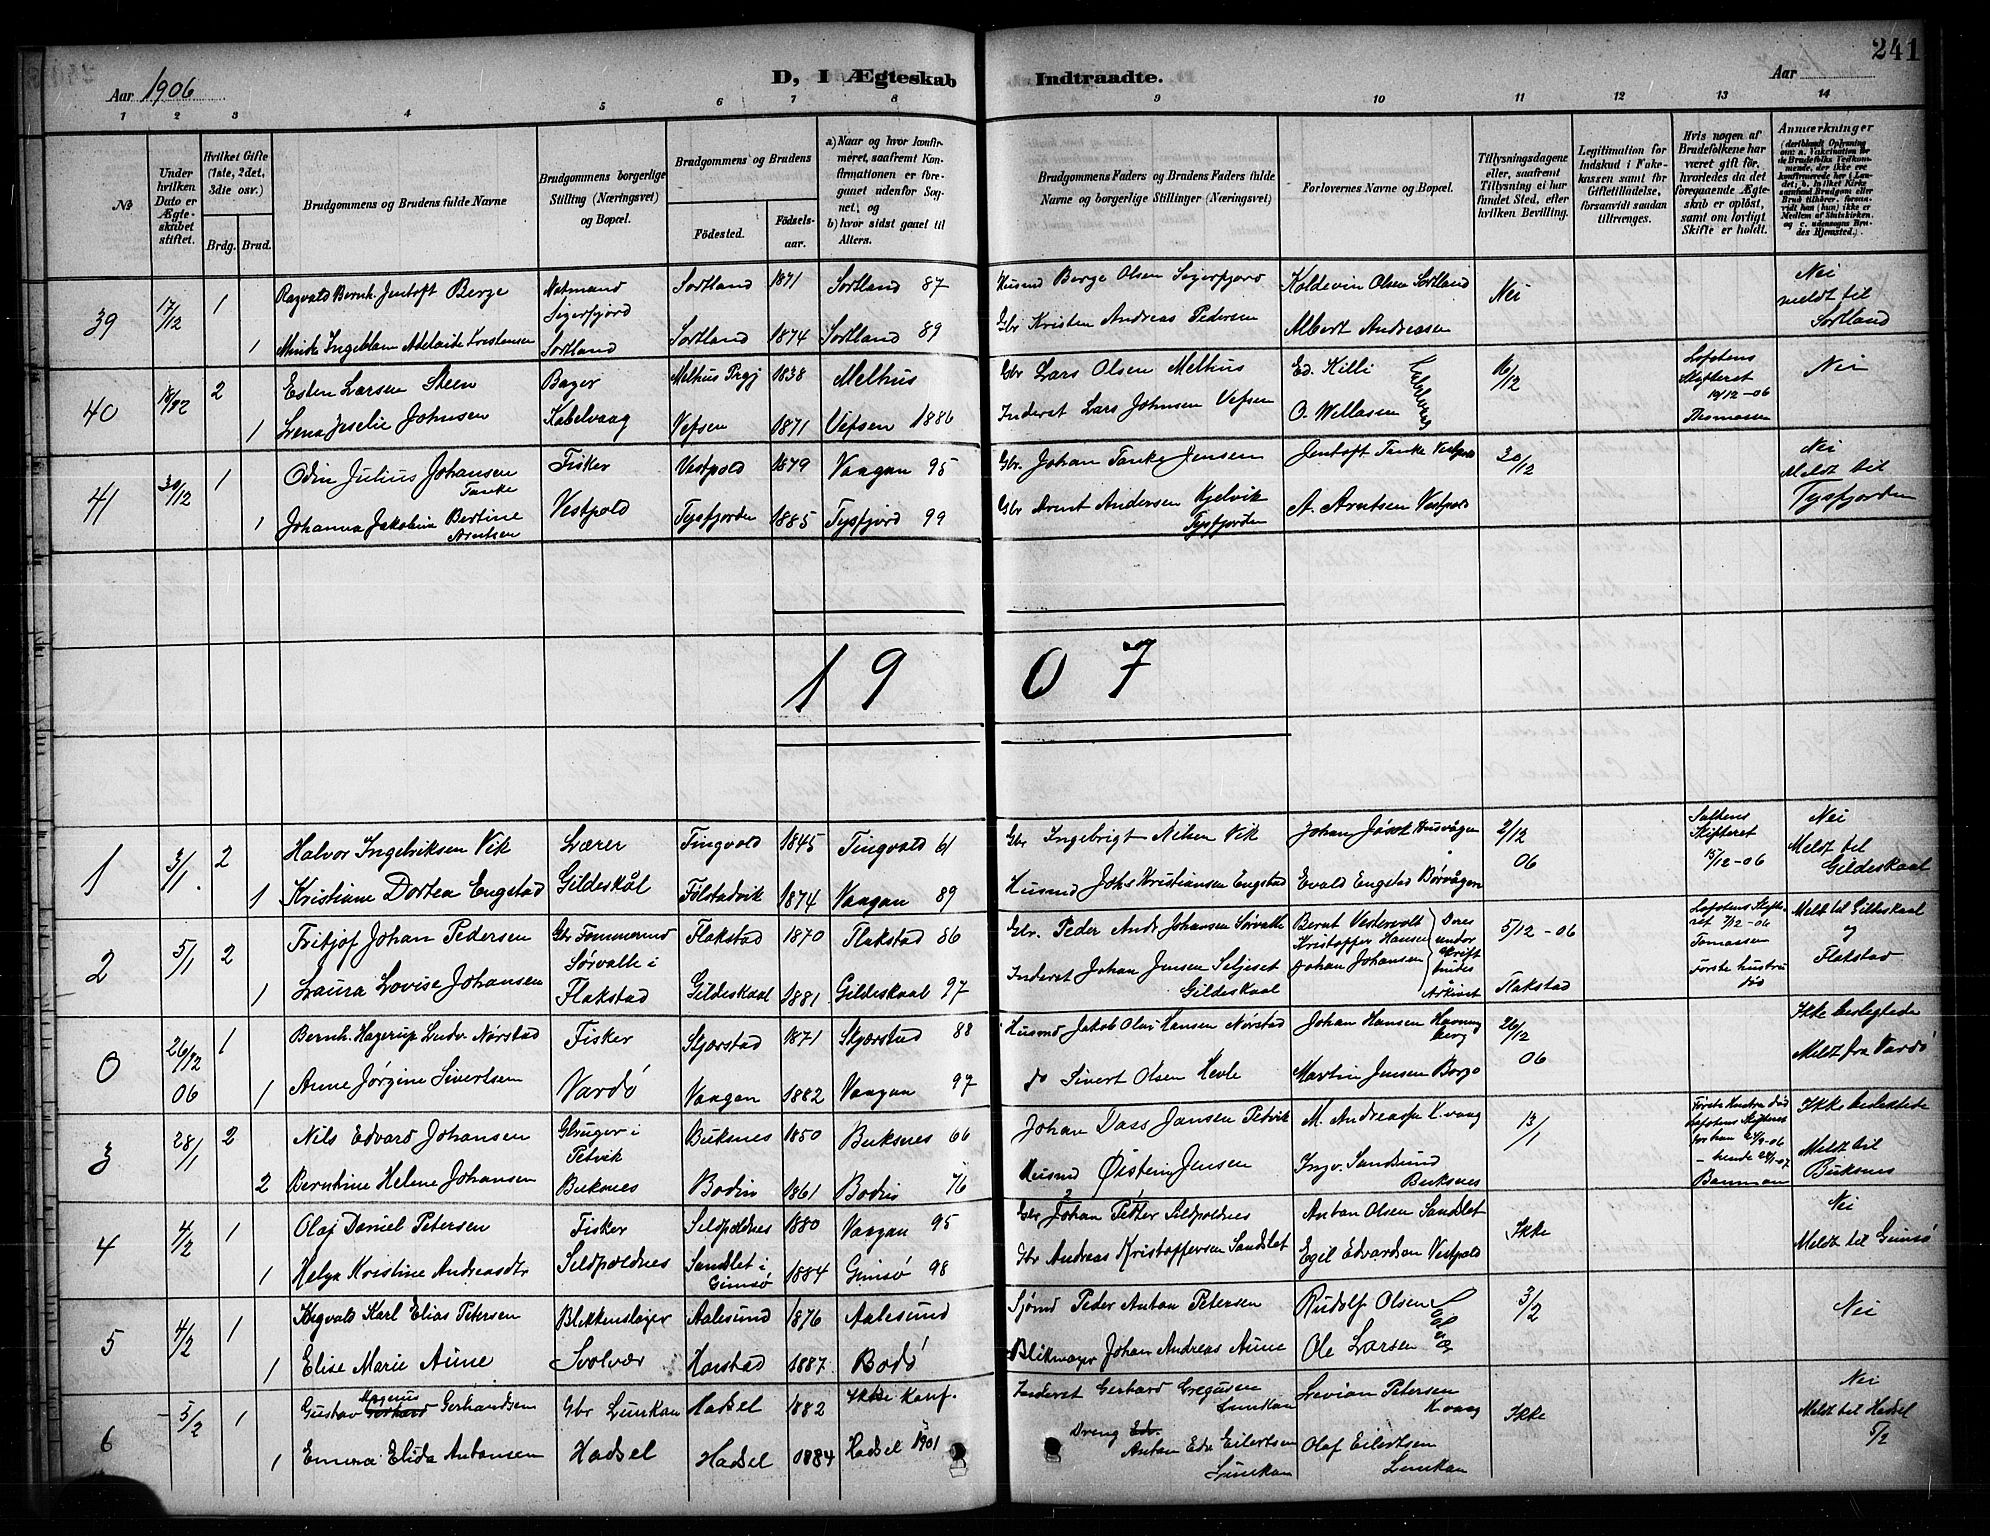 241
Aar 1906
D, I Ægteskab Indtraadte.
Aar
1 2 3 4 5 6 7 8 9 10 11 12 13 14
No
Under hvilken Dato er Ægteskabet stiftet.
Hvilket Gifte (1ste, 2det, 3die osv.)
Brdg. Brud.
Brudgommens og Brudens fulde Navne
Brudgommens borgerlige Stilling (Næringsvei) og Bopæl.
Brudgommens og Brudens
Fødested. Fødselsaar.
a) Naar og hvor konfirmeret, saafremt Konfirmationen er foregaaet udenfor Sognet; og
b) hvor sidst gaaet til Alters.
Brudgommens Faders og Brudens Faders fulde Navne og borgerlige Stillinger (Næringsvei)
Forlovernes Navne og Bopæl.
Tillysningsdagene eller, saafremt Tillysning ei har fundet Sted, efter hvilken Bevilling.
Legitimation for Indskud i Enkekassen samt for Giftetilladelse, forsaavidt saadan tiltrænges.
Hvis nogen af Brudefolkene har været gift før, hvorledes da det foregaaende Ægteskab er opløst, samt om lovligt Skifte er holdt.
Anmærkninger
39 17/12 1 Ragvald Bernh. Jentoft Berge Sortland 1871 Sortland 87 Husmd Berge Olsen Sigerfjord Koldevin Olsen Sortland Nei Nei
Sigerfjord meldt til
1 Sortland Sortland 1874 Sortland 89 Gbr Kristen Andreas Pedersen Albert Andreasen Sortland
40 2 Esten Larsen Steen Bager Melhus Prgj 1838 Melhus Gbr Lars Olsen Melhus Ed. Killi 16/12 Lofotens Skifteret 12-06 Nei
1 Lena Jeselie Johnsen Kabelvaag Vefsen 1871 Vefsen 1886 Inderst Lars Johnsen Vefsen O. Willasen Thomassen
41 30/12 1 Odin Julius Johansen Tanke Fisker Vestpold 1879 Vaagan 95 Gbr. Johan Tanke Jensen Jentoft Tanke Vestpold 30/12 Nei
Meldt til
1 Johanna Jakobine Bertine Arntsen Vestpold Tysfjorden 1885 Tysfjord 99 Gbr Arnt Andersen Kjelvik Tysfjorden A. Arntsen Vestpold Tysfjorden
1907
1 3/1. 2 Halvor Ingebriksen Vik Lærer Tingvold 1845 Tingvold 61 Gbr Ingebrigt Nilsen Vik Johan 2/12 06 Saltens Skifteret 15/12-06 Nei
Meldt til
1 Kristiane Dortea Engstad Gildeskål 1874 Vaagan 89 Husmd Johs Kristiansen Engstad Evald Engstad Børvågen Gildeskaal
2 5/1 2 Fritjof Johan Pedersen Gbr Tømmermd Flakstad 1870 Flakstad 86 Gbr. Peder Andr Johansen Sørvalle Bernt 5/12-06 Lofotens Skifteret 7/12-06 Meldt til Gildeskaal
Sørvalle i Kristoffer Hansen Tomassen og
1 Laura Lovise Johansen Flakstad Gildeskaal 1881 Gildeskaal 97 Inderst Johan Jensen Seljeset Gildeskaal Johan Johansen Flakstad Første hustru Flakstad
Deres underskrift findes Arkivet
0 26/12 06 1 Bernh. Hagerup Ludv. Nørstad Fisker Skjærstad 1871 Skjærstad 88 Husmd Jakob Olai Hansen Nørstad Johan Hansen 26/12 06 Ikke beslegtede
1 Anne Jørgine Sivertsen Vardø Vaagan 1882 Vaagan 97 do Sivert Olsen Hevle Martin Jensen Meldt fra Vardø
3 28/1 2 Nils Edvard Johansen Gbruger i Petvik Buksnes 1850 Buksnes 66 Johan Dass Jansen Petvik M. Andreassen Kvaag 13/1 Første Hustru død Ikke beslektede
Meldt til
2 Berntine Helene Johansen Buksnes Bodin 1861 Bodin 76 Husmd Øistein Jensen Ingv. Sandsund Buksnes Buksnes
4 4/2 1 Olaf Daniel Petersen Fisker Sildpoldnes 1880 Vaagan 95 Gbr Johan Petter Sildpoldnes Anton Olsen Sandslet Ikke Nei
1 Helga Kristine Andreasdtr Sildpoldnes Sandslet i Gimsø 1884 Gimsø 98 Gbr Andreas Kristoffersen Sandslet Egil Edvardsen Vestpold Meldt til Gimsø
5 4/2 1 Karl Elias Petersen Blikkenslager Aalesund 1876 Aalesund Sjømd Peder Anton Petersen Rudolf Olsen 3/2 Nei
1 Elise Marie Aune Svolvær Harstad 1887 Bodø Johan Andreas Aune Ole Larsen
6 5/2 1 Gustav Magnus Gerhardsen Gbr Lunkan Hadsel 1882 Ikke Konf. Inderst Gerhard Gregusen Lunkan Levian Petersen Kvaag Ikke Nei
1 Emma Elida Antonsen Hadsel Hadsel 1884 Hadsel 1901 Dreng Anton Edv Eilertsen Lunkan Olaf Eilertsen Lunkan Meldt til Hadsel 5/2